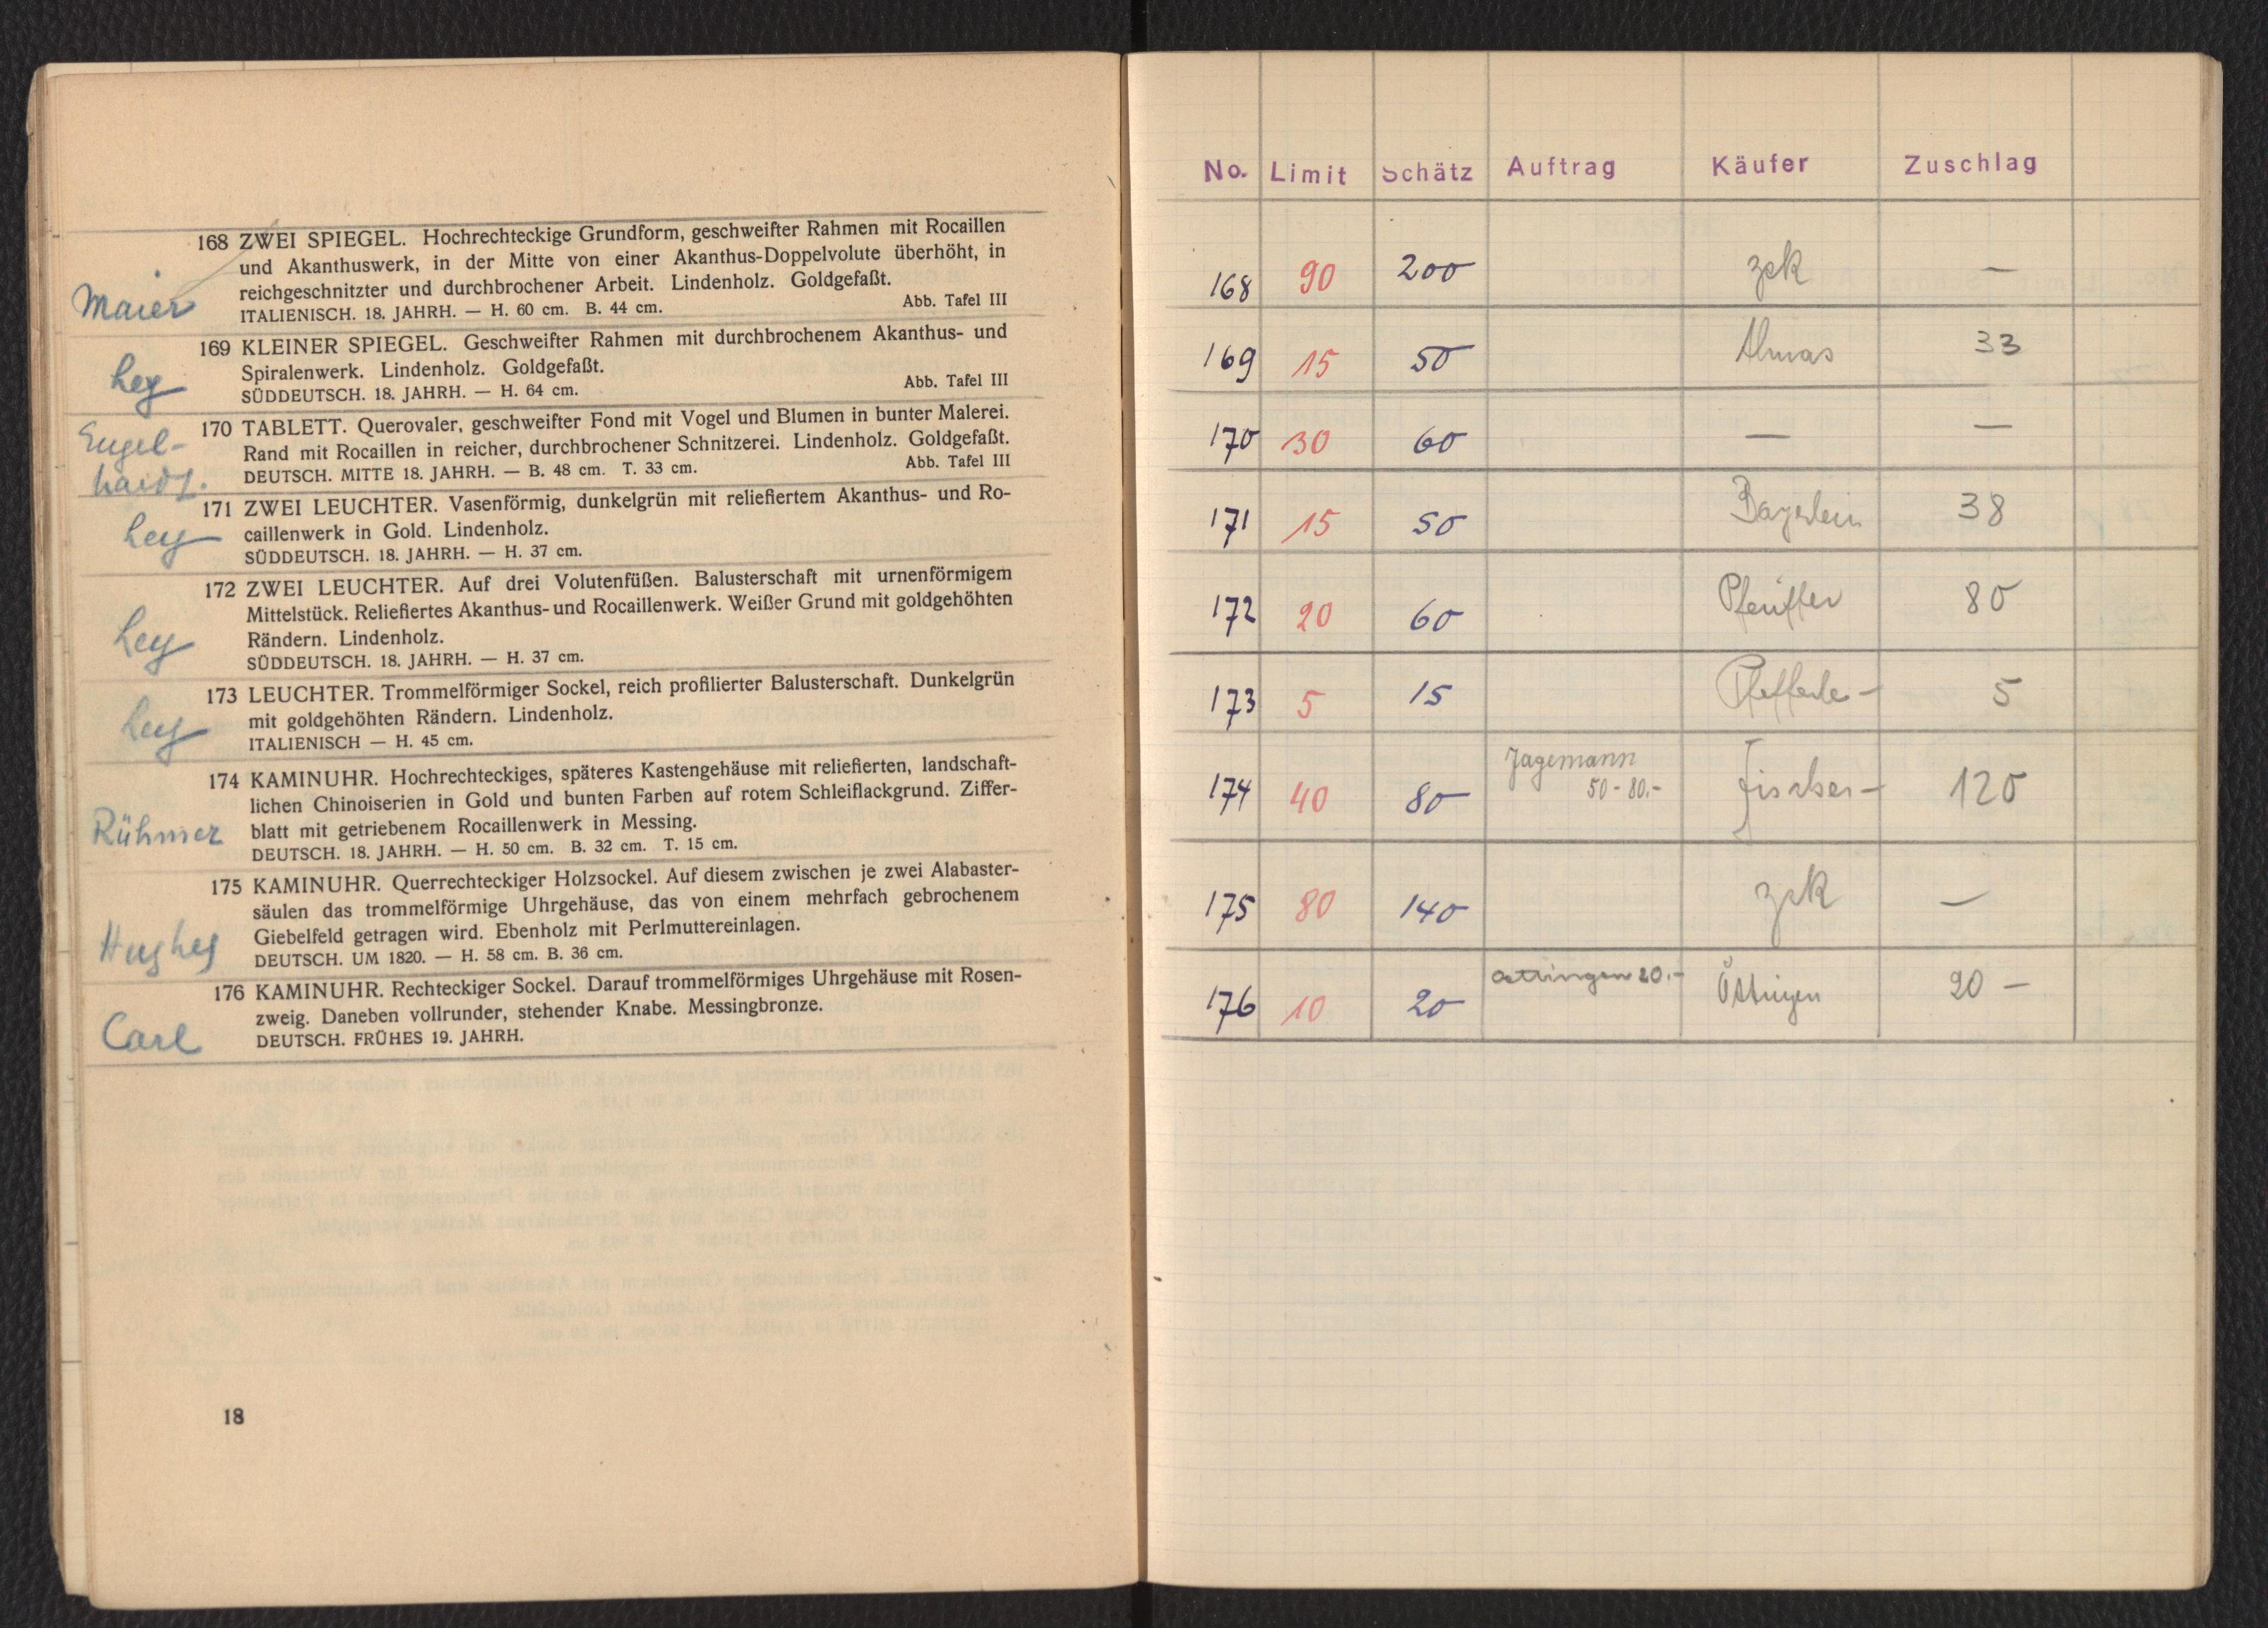 168 ZWEI SPIEGEL. Hochrechteckige Grundform, geschweifter Rahmen mit Rocaillen
und Akanthuswerk, in der Mitte von einer Akanthus-Doppelvolute überhöht, in
reichgeschnitzter und durchbrochener Arbeit. Lindenholz. Goldgefaßt.
Maier
ITALIENISCH. 18. JAHRH. — H. 60 cm. B. 44 cm. Abb. Tafel III
169 KLEINER SPIEGEL. Geschweifter Rahmen mit durchbrochenem Akanthus- und
Spiralenwerk. Lindenholz. Goldgefaßt.
Ley
SÜDDEUTSCH. 18. JAHRH. — H. 64 cm. Abb. Tafel III
170 TABLETT. Querovaler, geschweifter Fond mit Vogel und Blumen in bunter Malerei.
Engel-
Rand mit Rocaillen in reicher, durchbrochener Schnitzerei. Lindenholz. Goldgefaßt.
hardt.
DEUTSCH. MITTE 18. JAHRH. — B. 48 cm. T. 33 cm. Abb. Tafel III
171 ZWEI LEUCHTER. Vasenförmig, dunkelgrün mit reliefiertem Akanthus- und Ro-
Ley
caillenwerk in Gold. Lindenholz.
SÜDDEUTSCH. 18. JAHRH. — H. 37 cm.
172 ZWEI LEUCHTER. Auf drei Volutenfüßen. Balusterschaft mit urnenförmigem
Mittelstück. Reliefiertes Akanthus- und Rocaillenwerk. Weißer Grund mit goldgehöhten
Ley
Rändern. Lindenholz.
SÜDDEUTSCH. 18. JAHRH. — H. 37 cm.
173 LEUCHTER. Trommelförmiger Sockel, reich profilierter Balusterschaft. Dunkelgrün
Ley
mit goldgehöhten Rändern. Lindenholz.
ITALIENISCH — H. 45 cm.
174 KAMINUHR. Hochrechteckiges, späteres Kastengehäuse mit reliefierten, landschaft-
lichen Chinoiserien in Gold und bunten Farben auf rotem Schleiflackgrund. Ziffer-
Rühmer
blatt mit getriebenem Rocaillenwerk in Messing.
DEUTSCH. 18. JAHRH. — H. 50 cm. B. 32 cm. T. 15 cm.
175 KAMINUHR. Querrechteckiger Holzsockel. Auf diesem zwischen je zwei Alabaster-
säulen das trommelförmige Uhrgehäuse, das von einem mehrfach gebrochenem
Hughes
Giebelfeld getragen wird. Ebenholz mit Perlmuttereinlagen.
DEUTSCH. UM 1820. — H. 58 cm. B. 36 cm.
176 KAMINUHR. Rechteckiger Sockel. Darauf trommelförmiges Uhrgehäuse mit Rosen-
zweig. Daneben vollrunder, stehender Knabe. Messingbronze.
Carl
DEUTSCH. FRÜHES 19. JAHRH.
18
No. Limit Schätz Auftrag Käufer Zuschlag
168 90 200 zck —
169 15 50 Almas 33
170 30 60 — —
171 15 50 Bayerlein 38
172 20 60 Pfeuffer 80
173 5 15 Pfefferle - 5
174 40 80 Jagemann 50 - 80.- Fischer - 120
175 80 140 zck —
176 10 20 Oettingen 20.- Öttingen 20 -